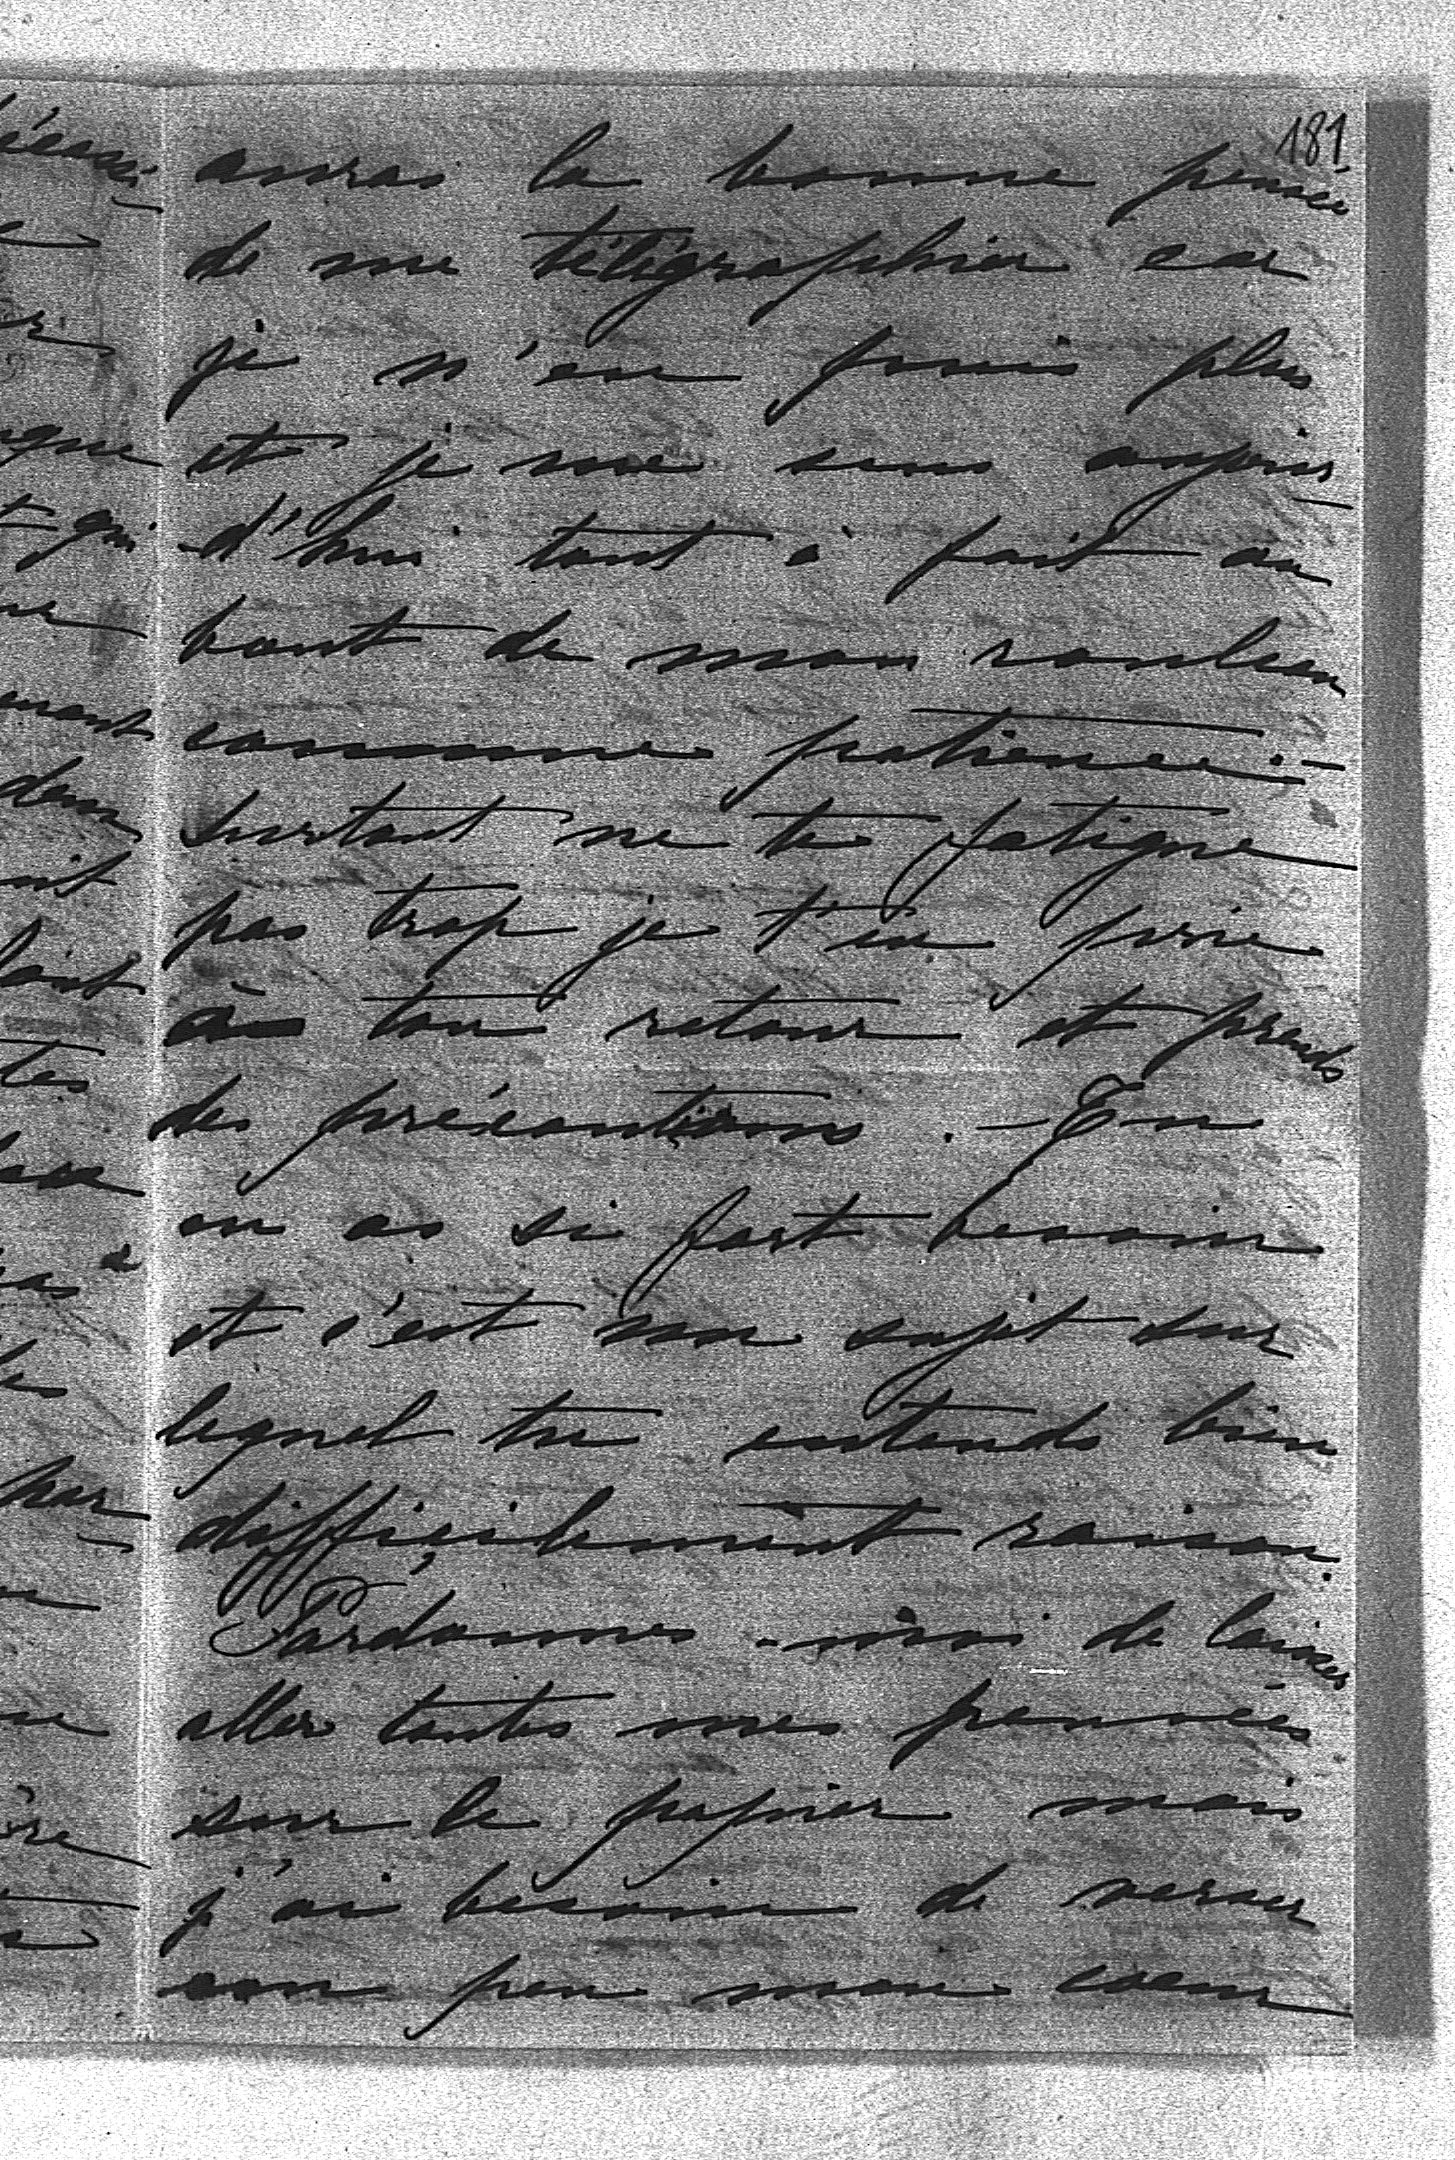 181
auras la bonne pensée
de me télégraphier car
je n'en puis plus
et je me sens aujour
d'hui tout à fait au
bout de mon rouleau
comme patience. —
Surtout ne te fatigue
pas trop je t'en prie
à ton retour et prends
des précautions. — Tu
en as si fort besoin
et c'est un sujet sur
lequel tu entends bien
difficilement raison.
Pardonnes-moi de laisser
aller toutes mes pensées
sur le papier mais
j'ai besoin de verser
un peu mon coeur